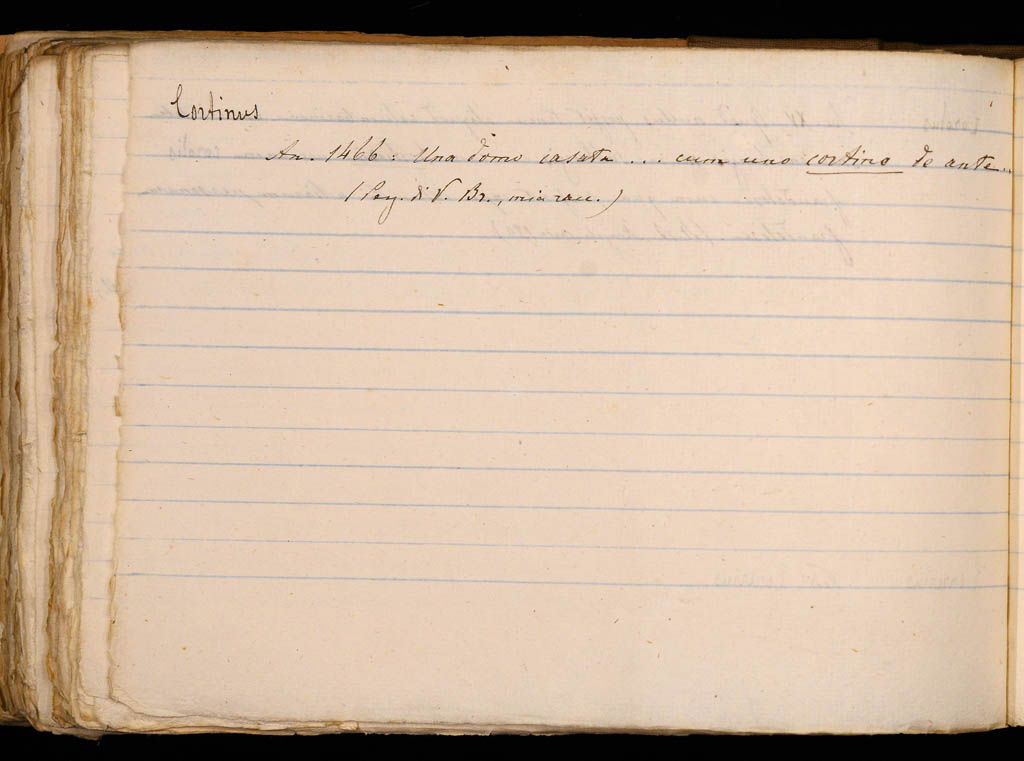 Cortinus
An. 1466: Una domo casata ... cum uno cortino de ante..
(Peg. di V. Br., mia racc.)